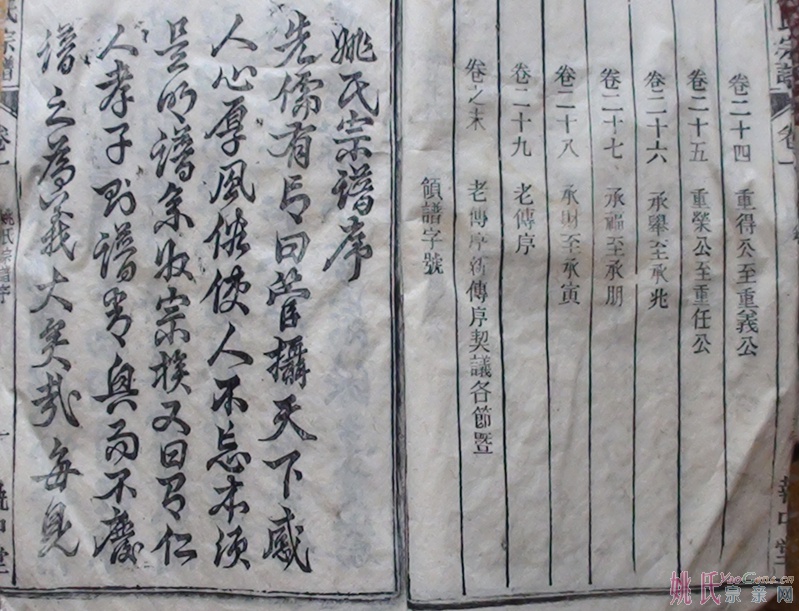 卷二十四 重得公至重義公
卷二十五 重榮公至重任公
卷二十六 承舉至承兆
卷二十七 承福至承朋
卷二十八 承財至承寅
卷二十九 老傳序
卷之末 老傳序新傳序契議各節暨
領譜字號
姚氏宗譜序
先儒有言曰管攝天下
人心厚風俗使人不忘本須
是明譜系收宗族又曰有仁
人孝子則譜
譜之為義大矣哉每見
氏宗譜
卷一
姚氏宗譜序
執中堂
姚氏宗亲网
YaoGens.cn